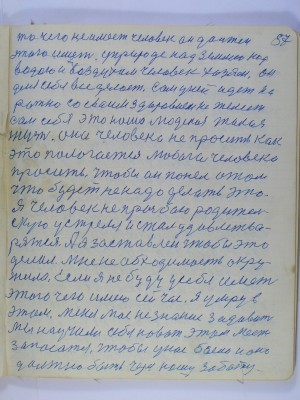 87
то чего неимеет человек он должен
этого иметь. у природе над Землею над
водою и воздухом человек хозяин, он
для себя все делает. Сам дней идет на
ратно со своим здоровием не желеет
сам себя это наша людская такая
она человека не просить как
это пологается любого человека
просить, чтобы он понел о том
что будет ненадо делать это.
Я человек не пробаю родител
скую устрелея и стал удовлетва-
рятся. А я заставлен чтобы это
делал. Мне необходимость окру-
жила, Если я не буду у себя иметь
этого чего имею сей час. Я умру в
этом, меня мое незнание задавить
Мы научили себя по вот этом месте
запасатся, чтобы у нас было и оно
должно быть через нашу заботу.